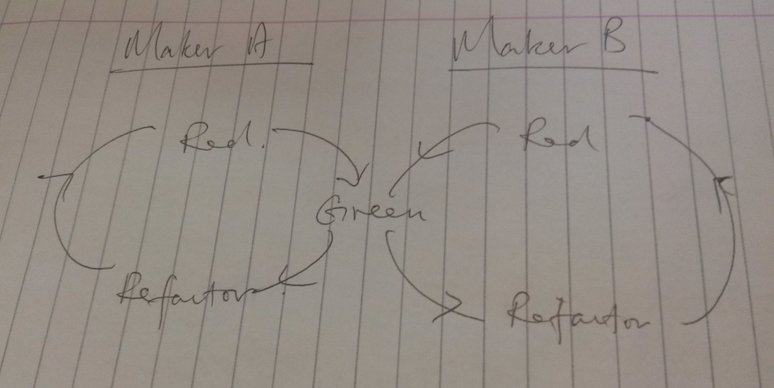 Maker A Maker B
Red. Red
Green
Refactor Refactor